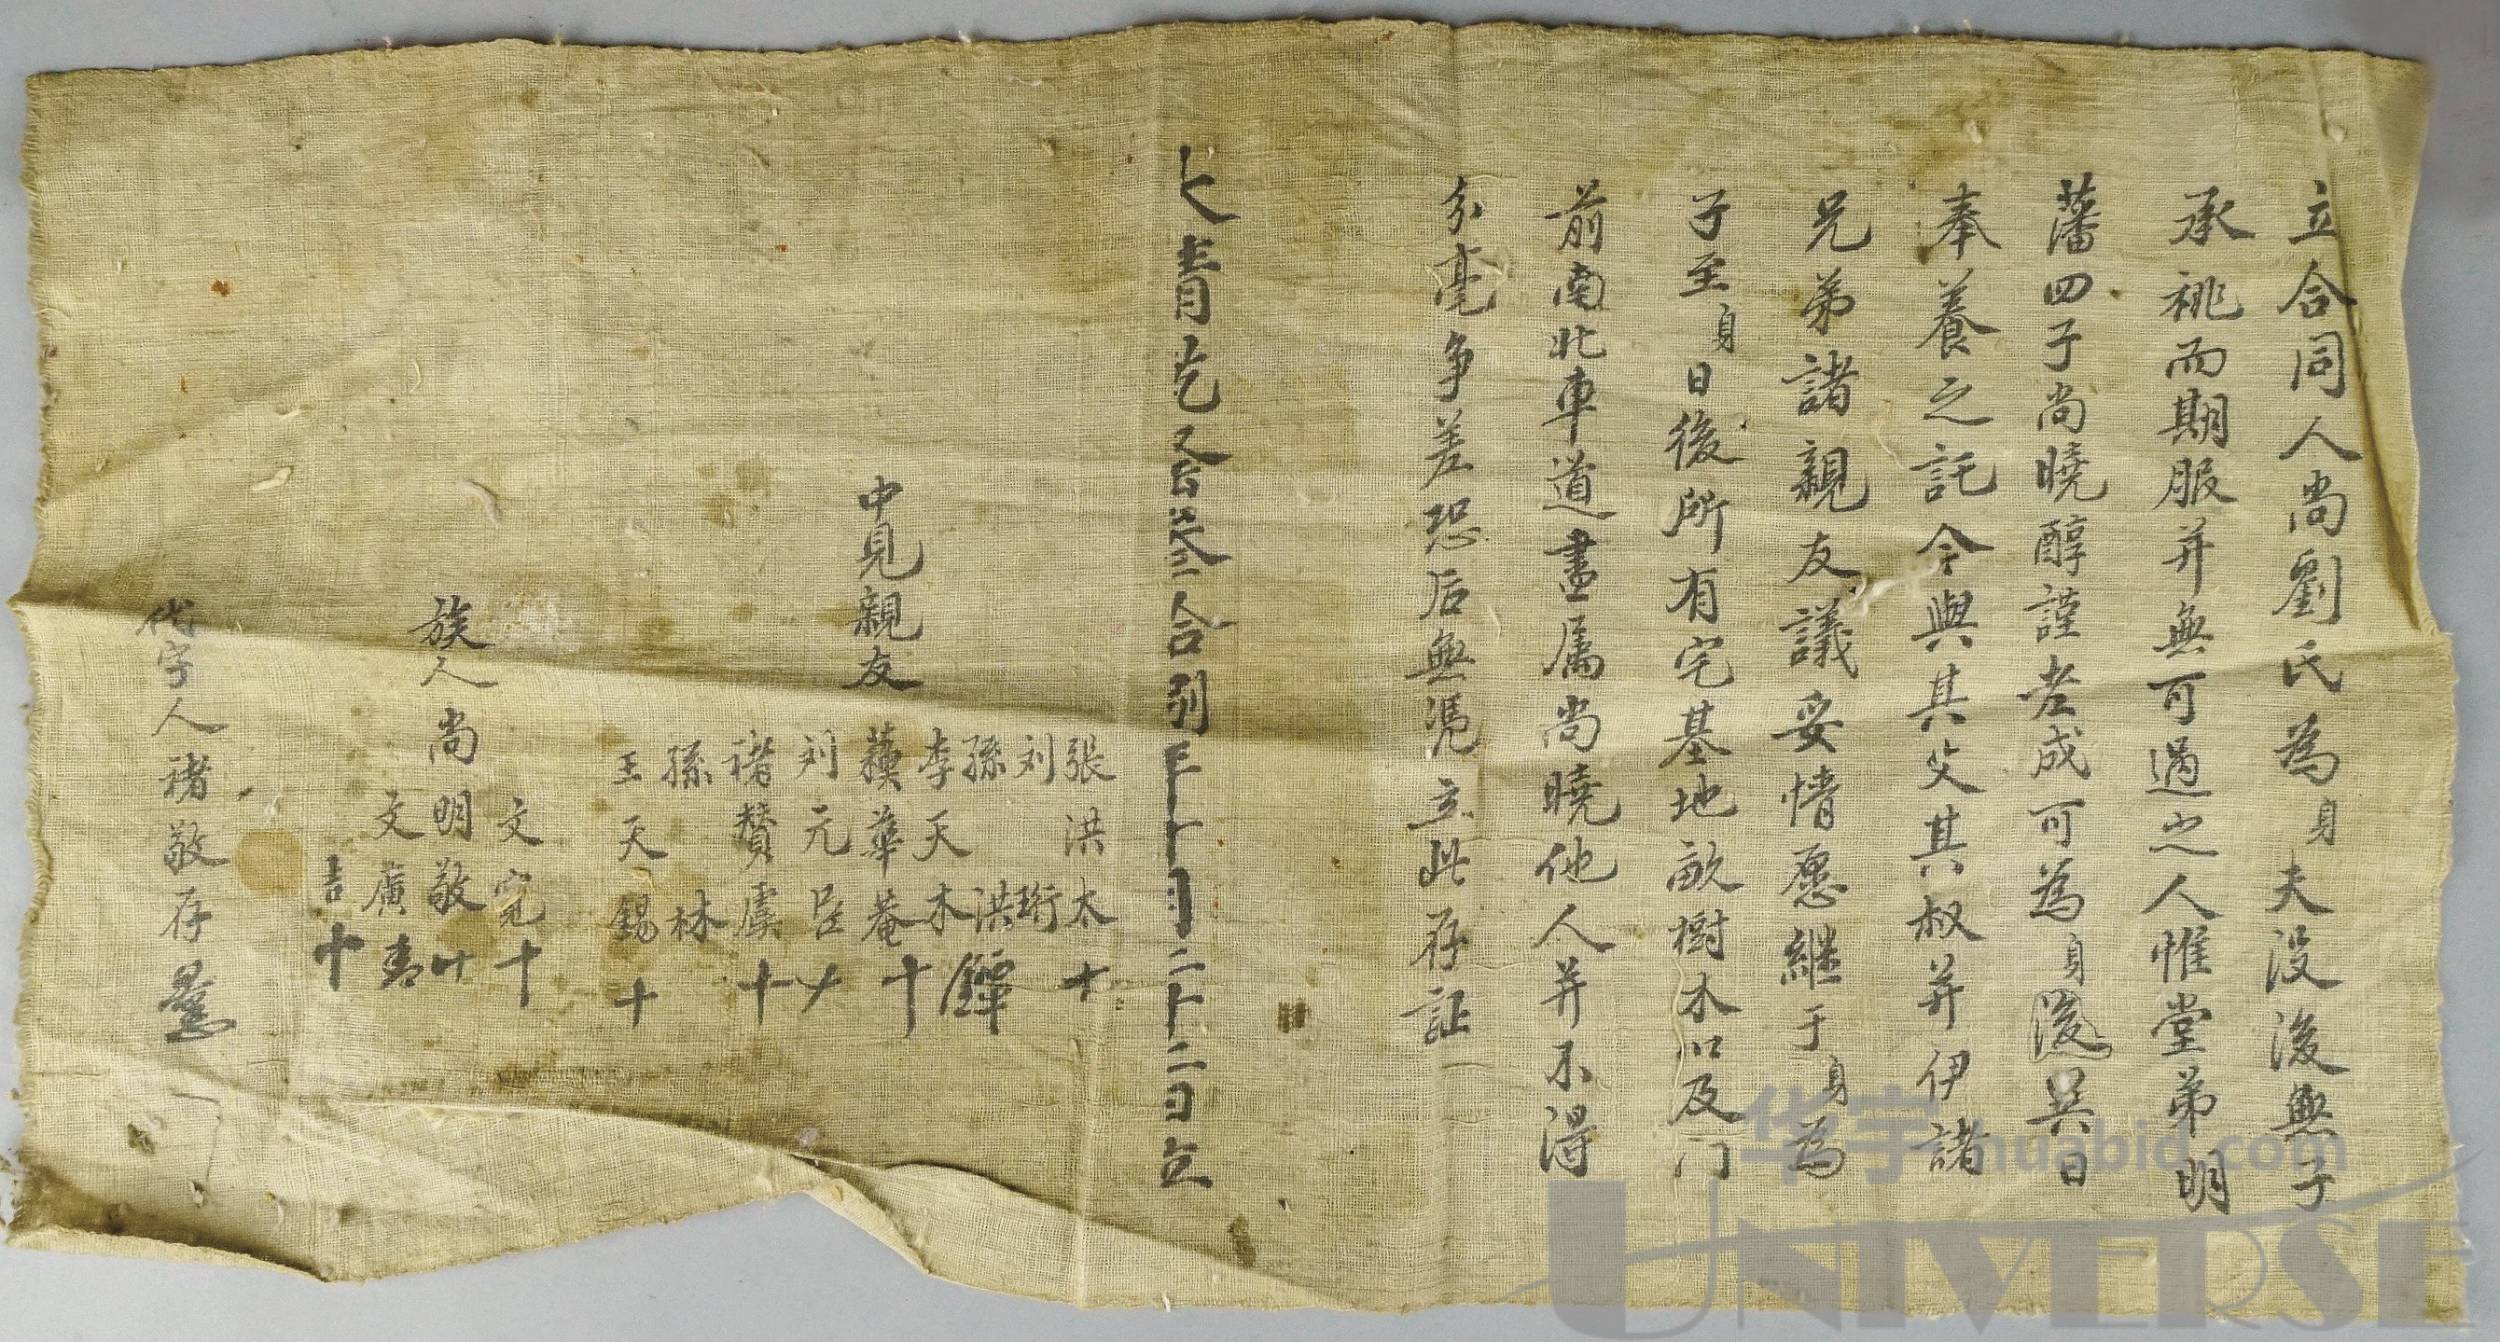 立合同人尚劉氏為身夫没後無子
承祧而期服并無可過之人惟堂弟明
藩四子尚曉醇謹老成可為身後異日
奉養之託今與其父其叔并伊諸
兄弟諸親友議妥情愿継于身為
子至身日後所有宅基地畝樹木以及门
前南北車道盡属尚曉他人并不得
分毫争差恐后無凴立此存証
大青
合同
年十月二十二日立
中見親友
張洪太十
刘珩
孫洪鐸
李天木
蘋華菴十
刘元
禇贊虞十
孫林
王天錫十
族人尚明敬
文寬十
文廣
吉十
代字人禇敬存
华宇 huabid.com
UNIVERSE